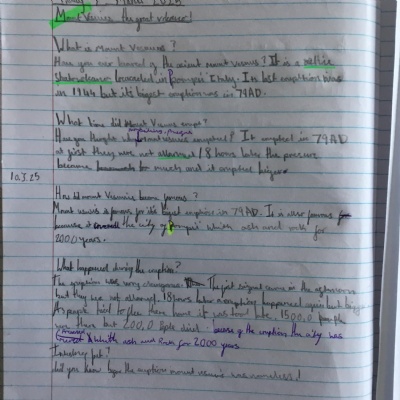 Mount Vesuvius the great volcano!
What is Mount Vesuvius?
Have you ever heard of the ancient mount Vesuvius? It is a
located in Pompeii Italy. Its last eruption was
in 1944 but its biggest eruption was in 79AD.
What time did Mount Vesuvius erupt?
Have you thought when mount vesuvius erupted? It erupted in 79AD
at first they were not alarmed 18 hours later the pressure
became much and it erupted bigger.
10.3.25
How did mount Vesuvius become famous?
Mount vesuvius is famous for its biggest eruption in 79AD. It is also famous
because it covered the city of Pompeii with ash and rocks for
2000 years.
What happened during the eruption?
The eruption was very dangerous. The first signal came in the afternoon
but they were not alarmed. 18 hours later everything happened again but bigger
As people tried to flee there home it was too late. 1500,0
was there but 200,0 died. because of the eruption the city was
with ash and rock for 2000 years
Interesting fact?
did you know before the eruption mount vesuvius was nameless!